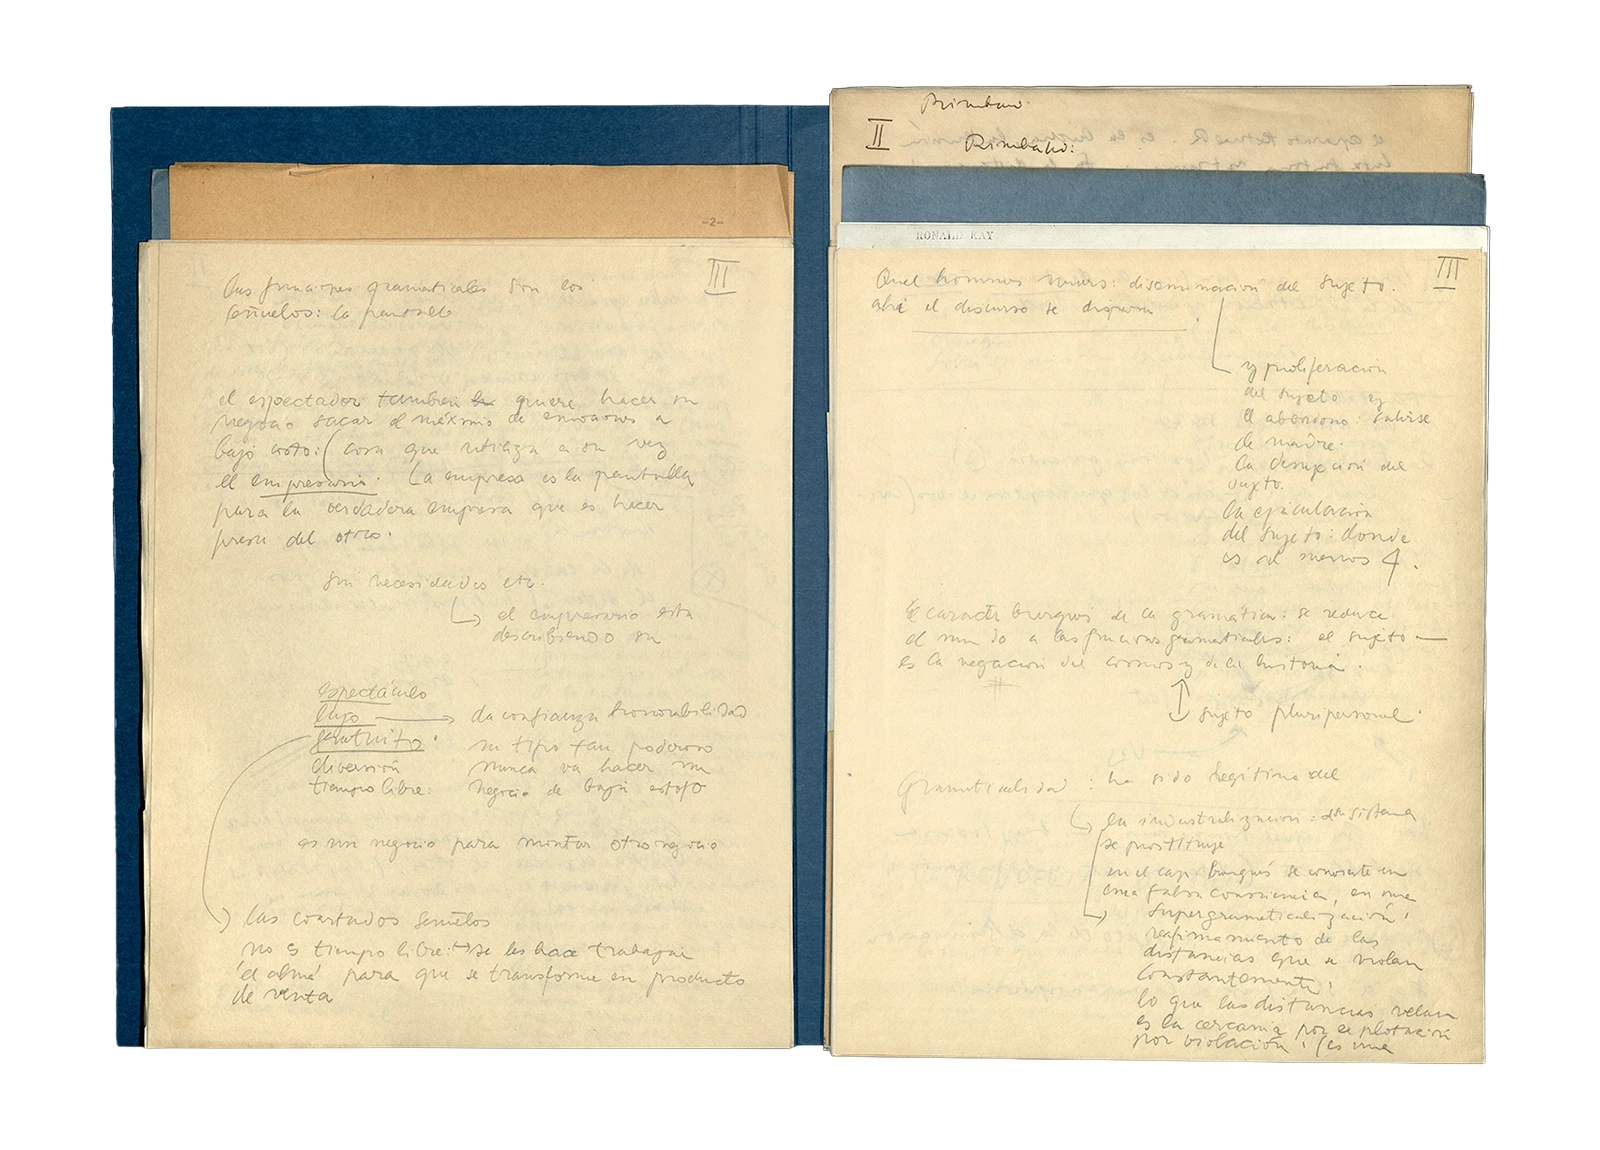 -2-
III
las funciones gramaticales son los
señuelos: la pantalla
el espectador tambien quiere hacer su
negocio sacar el máximo de emociones a
bajo costo: (cosa que utiliza a su vez
el empresario. La empresa es la pantalla
para la verdadera empresa que es hacer
presa del otro.
sus necesidades etc.
el empresario esta
describiendo su
espectáculo
lujo → da confianza honorabilidad
gratuito. un tipo tan poderoso
diversión nunca va hacer un
tiempo libre: negocio de baja estofa
es un negocio para montar otro negocio
las coartadas señuelos
no es tiempo libre: → se les hace trabajar
'el alma' para que se transforme en producto
de venta
Rimbaud
II
Rimbaud:
RONALD KAY
III
Quel hommes : diseminacion del sujeto.
ahi el discurso se dispara
y proliferacion
del sujeto y
el abandono: salirse
de madre.
la del
sujeto.
la
del sujeto: donde
es al menos 4.
El caracter burgues de la gramática: se reduce
el mundo a las funciones gramaticales: el sujeto —
es la negacion del cosmos y de la historia.
sujeto pluripersonal.
Gramaticalidad: ha sido legitima del
la industrializacion: un sistema
se prostituye
en el cap. burgués se convierte en
una falsa consciencia, en una
supergramaticalización:
reafirmamiento de las
distancias que se violan
constantemente:
lo que las distancias velan
es la cercania por explotación
por violación: (es una